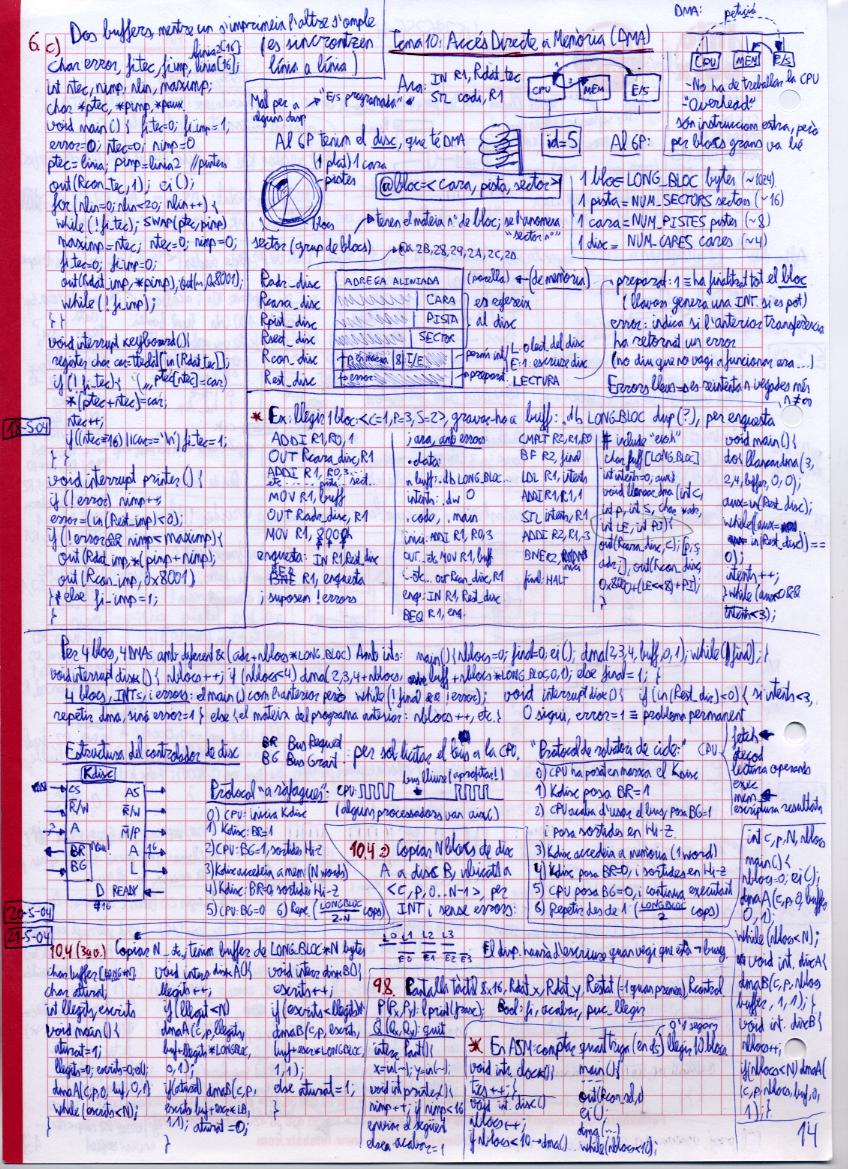 6. c) Dos buffers, mentre un s'imprimeix l'altre s'omple
(es sincronitzen línia a línia)
línia2[16]
char error, fitec, fiimp, línia[16];
int ntec, nimp, nlin, maximp;
char *ptec, *pimp, *paux
void main() { fitec=0; fiimp=1;
error=0; ntec=0; nimp=0
ptec=línia; pimp=línia2 //punters
out(Rcon_tec, 1); ei();
for(nlin=0; nlin<20; nlin++) {
while(!fitec); swap(ptec, pimp)
maximp=ntec; ntec=0; nimp=0;
fitec=0; fiimp=0;
out(Rdat_imp, *pimp); out( 0x8001)
while(!fiimp);
} }
void interrupt keyboard() {
register char car=tteclat[in(Rdat_tec)];
if(!fitec) { ptec[ntec]=car
*(ptec+ntec)=car;
ntec++;
if((ntec==16)||car=='\n') fitec=1;
} }
void interrupt printer() {
if(!error) nimp++;
error=(in(Rest_imp)<0);
if(!error && nimp<maximp) {
out(Rdat_imp, *(pimp+nimp);
out(Rcon_imp, 0x8001)
} else fi_imp=1;
}
Tema 10: Accés Directe a Memòria (DMA)
DMA: petició
CPU MEM E/S
Mal per a alguns disp
"E/S programada"
Ara: IN R1, Rdat_tec
ST codi, R1
CPU MEM E/S
-No ha de treballar la CPU
-"Overhead"
són instruccions extra, però
per blocs grans va bé
Al GP tenim el disc, que té DMA
id=5
Al GP:
(1 plat) 1 cara
pistes
blocs
sector (grup de blocs)
@bloc=<cara, pista, sector>
tenen el mateix nº de bloc; se l'anomena
"sector n"
2B, 28, 29, 2A, 2C, 2D
1 bloc=LONG_BLOC bytes (~1024)
1 pista=NUM_SECTORS sectors (~16)
1 cara=NUM_PISTES pistes (~8)
1 disc=NUM_CARES cares (~4)
Radr_disc ADREÇA ALINIADA (parella) (de memòria)
Rcara_disc CARA
Rpist_disc PISTA
Rsect_disc SECTOR
es refereix
al disc
Rcon_disc 8 L/E
permís int
L: lect. del disc
E: 1: escriure disc
Rest_disc error preparat LECTURA
preparat: 1 ≡ ha finalitzat tot el bloc
(llavors genera una INT. si es pot)
error: indica si l'anterior transferència
ha retornat un error
(no diu que no vagi a funcionar ara...)
Errors lleus → es reintenta n vegades més
18-5-04
* Ex: llegir 1 bloc <C=1, P=3, S=2>, gravar-ho a buff: .db LONG_BLOC dup(?), per enquesta
ADDI R1, R0, 1
OUT Rcara_disc, R1
ADDI R1, R0, 3...
etc ... pista... sect...
MOV R1, buff
OUT Radr_disc, R1
MOV R1, 8000h
enquesta: IN R1, Rest_disc
BEQ R1, enquesta
; suposem !errors
; ara, amb errors
.data:
.buff: .db LONG_BLOC...
intents: .dw 0
.code, .main
inici: ADDI R1, R0, 3
OUT...etc MOV R1, buff
...etc... out Rcon_disc, R1
enq: IN R1, Rest_disc
BEQ R1, enq.
CMPLT R2, R1, R0
BF R2, final
LD R1, intents
ADDI R1, R1, 1
ST intents, R1
ADDI R2, R1, 3
BNE R2, inici
final: HALT
# include "es.h"
char buff[LONG_BLOC]
int intents=0, aux;
void llancar_dma (int c,
int p, int s, char *adr,
int LE, int PI) {
out(Rcara_disc, c); [p, s,
adr..]; out(Rcon_disc,
0x8000+(LE<<8)+PI);
}
void main() {
do { llancar_dma(3,
2, 4, buffer, 0, 0);
aux=in(Rest_disc);
while(aux=
in(Rest_disc))==
0);
intents++;
} while(aux<0 &&
intents<3);
Per 4 blocs, 4 DMAs amb diferent & (adr+nblocs*LONG_BLOC) Amb ints: main() {nblocs=0; final=0; ei(); dma(2,3,4, buff, 0, 1); while(!final); }
void interrupt disk() { nblocs++; if (nblocs<4) dma(2,3,4+nblocs, buff+nblocs*LONG_BLOC, 0, 1); else final=1; }
4 blocs, INTs, i errors: el main() com l'anterior però while(!final && !error); void interrupt disc() { if (in(Rest_disc)<0) { si intents<3,
repetir dma, sinó error=1 } else {el mateix del programa anterior: nblocs++, etc.} O sigui, error=1 ≡ problema permanent
Estructura del controlador de disc
BR Bus Request
BG Bus Grant
per sol·licitar el bus a la CPU.
Kdisc
CS AS
R/W R/W
A M/P
BR A 16
BG L
D READY
16
Protocol "a ràfagues": CPU
bus lliure (aprofitar!)
(alguns processadors van així)
0) CPU: inicia Kdisc
1) Kdisc: BR=1
2) CPU: BG=1, sortides Hi-Z
3) Kdisc accedeix a mem (N words)
4) Kdisc: BR=0 sortides Hi-Z
5) CPU: BG=0 6) Repe. (LONGBLOC/2·N cops)
"Protocol de robatori de cicle:"
0) CPU ha posat en marxa el Kdisc
1) Kdisc posa BR=1
2) CPU acaba d'usar el bus, posa BG=1
i posa sortides en Hi-Z
3) Kdisc accedeix a memòria (1 word)
4) Kdisc posa BR=0, i sortides en Hi-Z
5) CPU posa BG=0, i continua executant
6) Repetir des de 1 (LONGBLOC/2 cops)
CPU
fetch
decod
lectura operands
exec
mem
escriptura resultats
10.4 2) Copiar N blocs de disc
A a disc B, ubicats a
<C, P, 0..N-1> per
INT i sense errors:
int c, p, N, nblocs
main() {
nblocs=0; ei();
dmaA(c, p, 0, buffer,
0, 1);
while(nblocs<N);
void int. discA {
dmaB(c, p, nblocs
buffer, 1, 1); }
void int. discB {
nblocs++;
if(nblocs<N) dmaA(
c, p, nblocs, buf, 0,
1); }
20-5-04
21-5-04
10.4 (3 ) Copiar N , tenim buffer de LONG_BLOC*N bytes
L0 L1 L2 L3
E0 E1 E2 E3
El disp. hauria d'escriure quan vegi que està
char buffer[LONG*N]
char aturat;
int llegits, escrits
void main() {
aturat=1;
llegits=0; escrits=0; ei();
dmaA(c, p, 0, buf, 0, 1)
while(escrits<N);
}
void interr. diskA() {
llegits++
if(llegits<N)
dmaA(c, p, llegits,
buf+llegits*LONGBLOC,
0, 1);
if(aturat) dmaB(c, p,
escrits, buf+escr*LB,
1, 1); aturat=0;
}
void interr diskB() {
escrits++;
if(escrits<llegits)
dmaB(c, p, escrits,
buf+escr*LONGBLOC,
1, 1);
else aturat=1;
}
9.8. Pantalla tàctil 8x16, Rdat_x, Rdat_y, Restat (-1 quan premem), Rcontrol
P(Px, Py): print(frase); Bool: fi, acabar, puc_llegir
Q(Qx, Qy): quit
interr. Pant() {
x=in(~); y=in(~);
void int printer() {
nimp++; if nimp<16
enviar el següent
else acabar=1
* En ASM: comptar quant triga (en 1s) llegir 10 blocs
void int. clock() {
tics++; }
void int. disc()
nblocs++;
if nblocs<10→dma()...
main() {
out(Rcon_rel, 1)
ei();
dma(~)
while(nblocs<10);
14